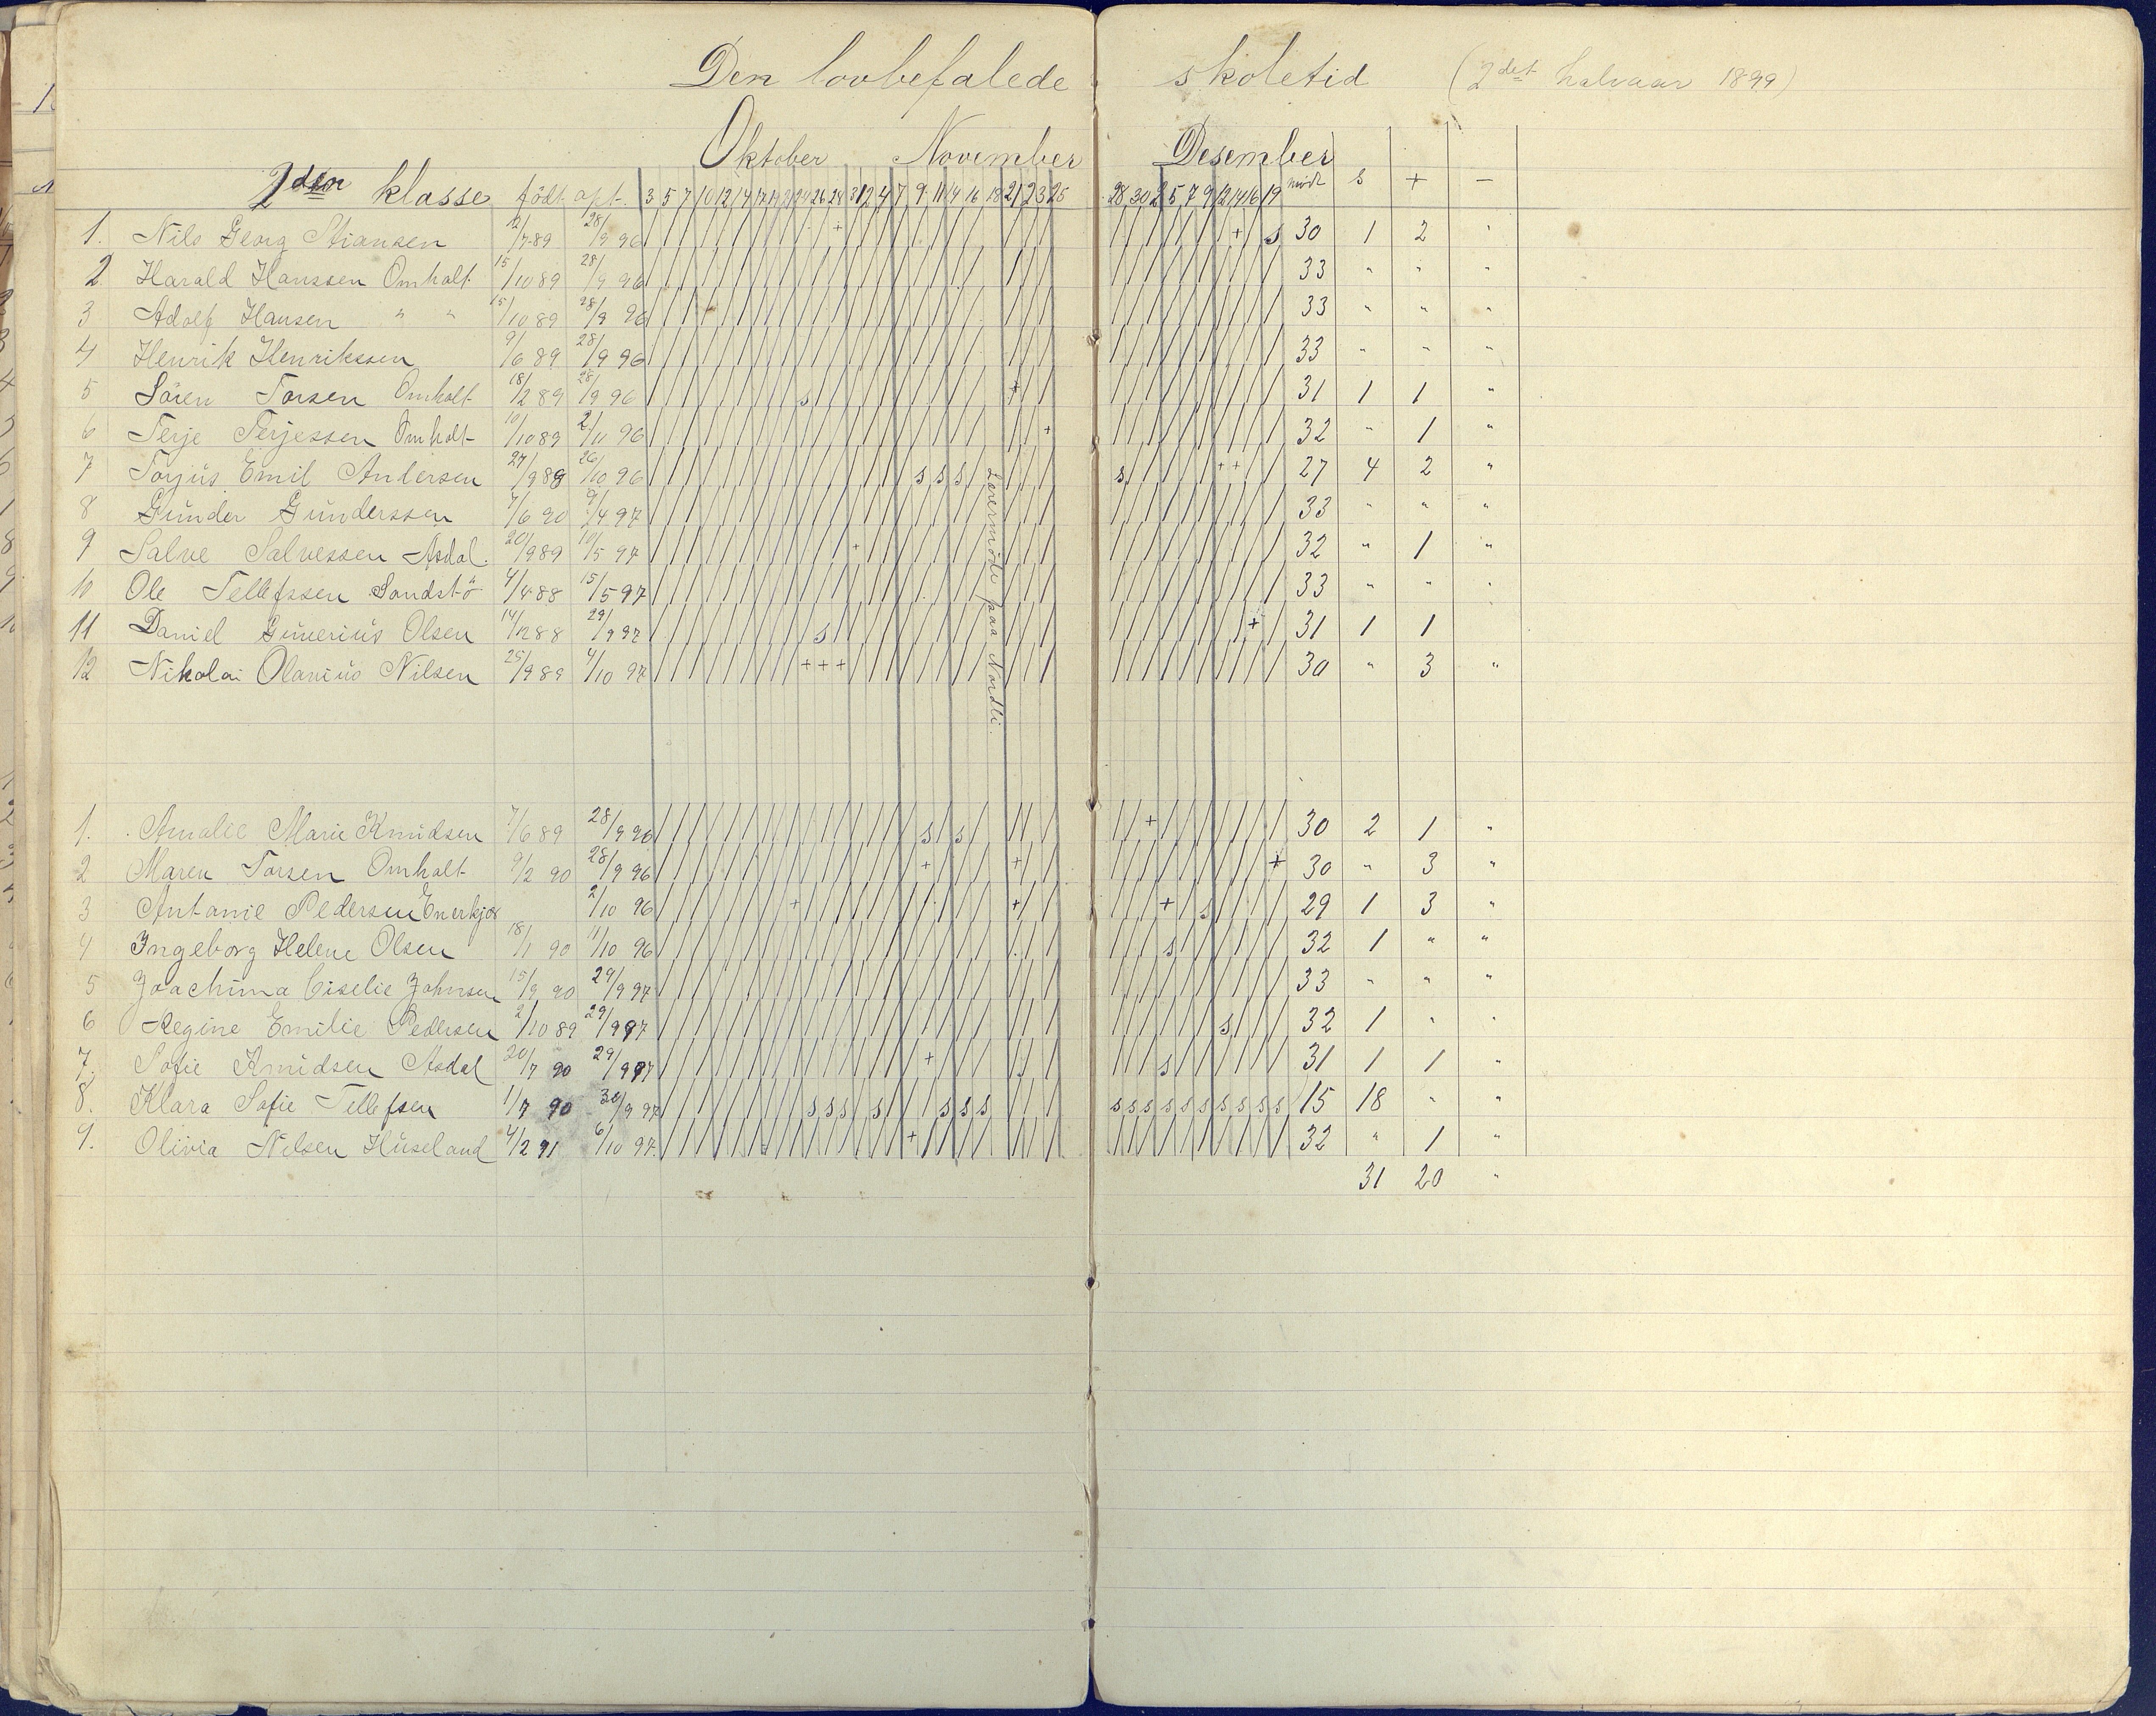 Den lovbefalede skoletid (2det halvaar 1899)
Oktober November Desember
2den klasse födt opt. 3 5 7 10 12 14 17 19 21 24 26 28 31 2 4 7 9 11 14 16 18 21 23 25 28 30 2 5 7 9 12 14 16 19 mödt s + -
1. Nils Georg Stiansen 12/7 89 28/9 96 + + s 30 1 2 "
2 Harald Hanssen Omholt 15/10 89 28/9 96 33 " " "
3 Adolf Hansen " " 15/10 89 28/9 96 33 " " "
4 Henrik Henrikssen 9/6 89 28/9 96 33 " " "
5 Sören Torsen Omholt 18/2 89 28/9 96 s + 31 1 1 "
6 Terje Terjessen Omholt 10/10 89 2/11 96 + 32 " 1 "
7 Torjus Emil Andersen 27/9 89 26/10 96 s s s s + + 27 4 2 "
8 Gunder Gunderssen 7/6 90 9/4 97 33 " " "
9 Salve Salvessen Asdal. 20/9 89 10/5 97 + 32 " 1 "
10 Ole Tellefssen Sandstö 4/4 88 15/5 97 33 " " "
11 Daniel Gunerius Olsen 14/12 88 29/9 97 s + 31 1 1
12 Nikolai Olanius Nilsen 25/9 89 4/10 97 + + + 30 " 3 "
Lærermöde paa Nordli.
1. Amalie Marie Knudsen 7/6 89 28/9 96 s s + 30 2 1 "
2 Maren Torsen Omholt 9/2 90 28/9 96 + + + 30 " 3 "
3 Antonie Pedersen 2/10 96 + + + s 29 1 3 "
4 Ingeborg Helene Olsen 18/1 90 11/10 96 s 32 1 " "
5 Joachima Giselie Johnsen 15/9 90 29/9 97 33 " " "
6 Regine Emilie Pedersen 2/10 89 29/9 97 s 32 1 " "
7. Sofie Knudsen Asdal 20/7 90 29/9 97 + s 31 1 1 "
8. Klara Sofie Tellefsen 1/7 90 30/9 97 s s s s s s s s s s s s s s s s s 15 18 " "
9. Olivia Nilsen Huseland 4/2 91 6/10 97. + 32 " 1 "
31 20 "